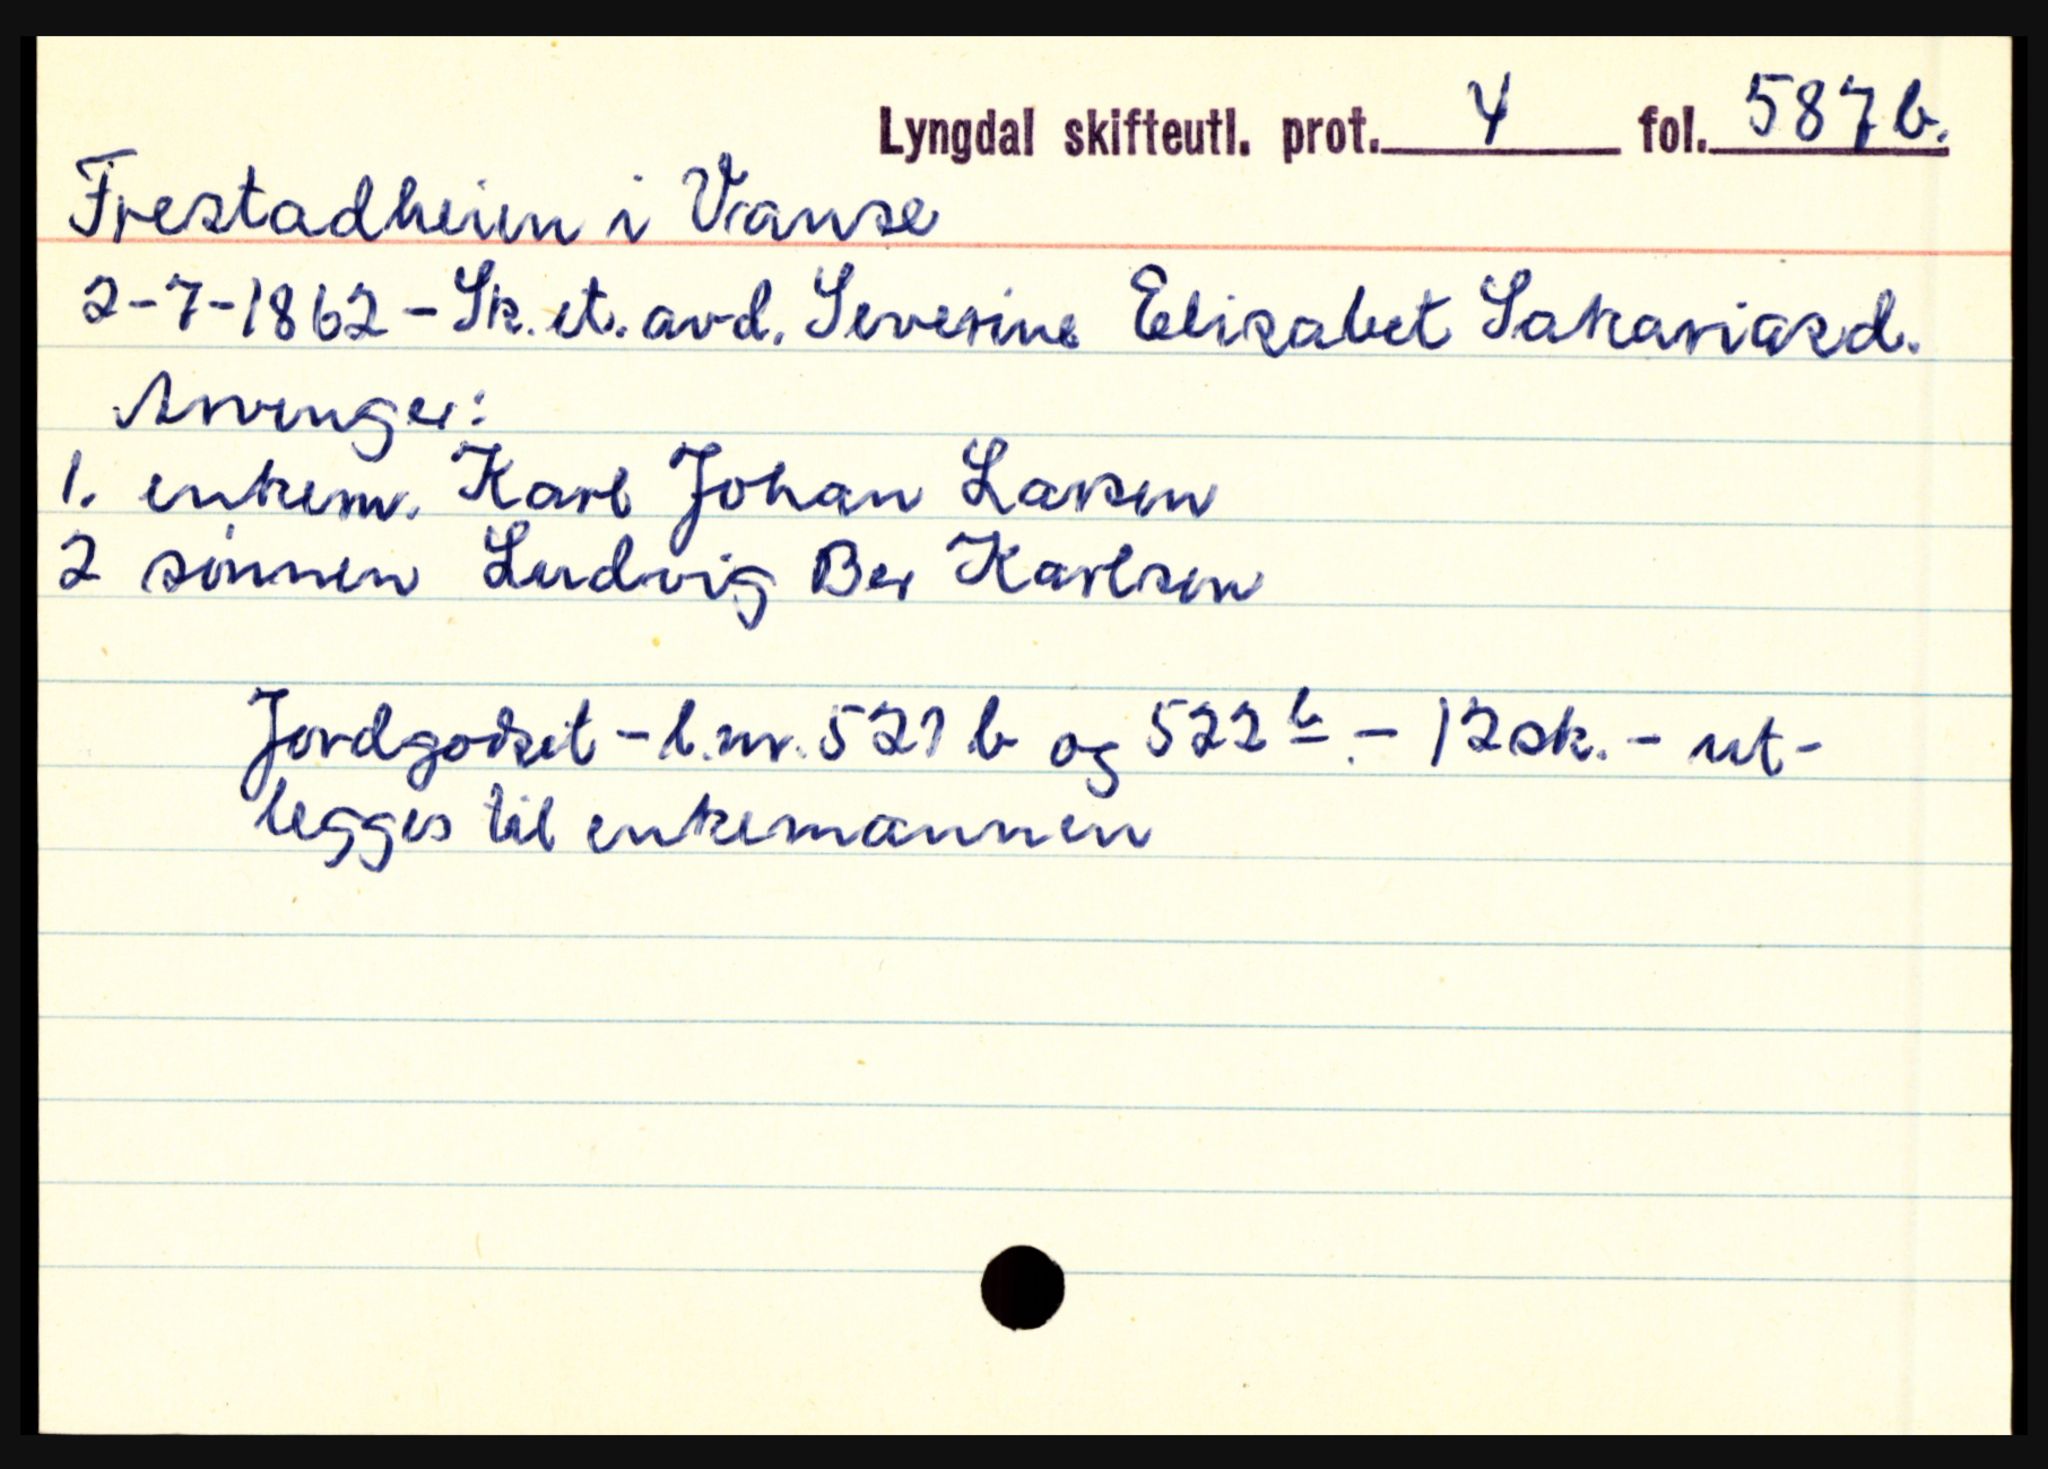 Lyngdal skifteutl. prot. 4 fol. 587b.
Frestadheien i Vanse
2-7-1862 - Sk. et. avd. Severine Elisabet Sakariasd.
Arvinger:
1. enkem. Karl Johan Larsen
2 sønnen Ludvig Ber Karlsen
Jordgodset - l.nr. 521 b og 522 b. - 12 sk. - ut-
legges til enkemannen